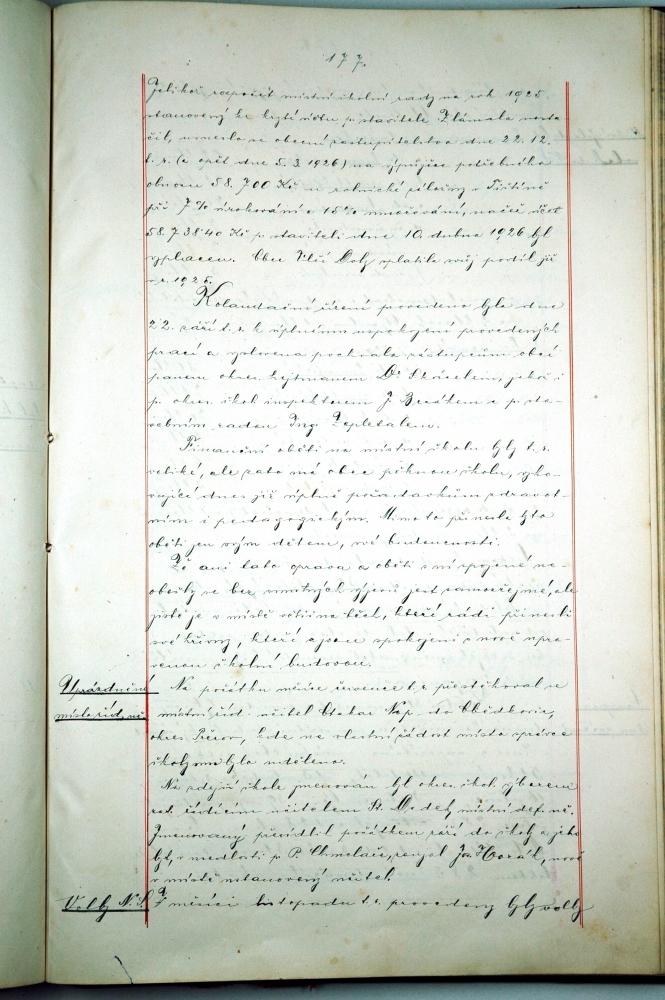 177.
Jelikož rozpočet místní školní rady na rok 1925
stanovený ke krytí účtu p. stavitele Zlámala nesta
čil, usneslo se obecní zastupitelstvo dne 22. 12.
t. r. (a opět dne 5. 3. 1926) na výpůjce potřebného
obnosu 58.700 Kč u rolnické záložny v
při 7% zúrokování a 15% umořování, načež účet
58.738·40 Kč p. staviteli dne 10. dubna 1926 byl
vyplacen. Obec Vlčí Doly splatila svůj podíl již
v r. 1925.
Kolaudační řízení provedeno bylo dne
22. září t. r. k úplnému uspokojení provedených
prací a vyslovena pochvala zástupcům obcí
panem okres. hejtmanem Dr. jakož i
p. okres. škol. inspektorem J. a p. sta-
vebním radou Ing. Zapletalem.
Finanční oběti na místní školu byly t. r.
veliké, ale zato má obec pěknou školu, vyho-
vující dnes již úplně požadavkům zdravot-
ním i pedagogickým. Mimoto přinesla tyto
oběti jen svým dětem, své budoucnosti.
Že ani tato oprava a oběti s ní spojené ne-
obešly se bez mnohých výjevů jest samozřejmé, ale
jistě je v místě většina těch, kteří rádi přinesli
své hřivny, kteří a jsou spokojeni s nově upra-
venou školní budovou.
Uprázdněné
místo říd. uč.
Na počátku měsíce července t. r. přestěhoval se
místní říd. učitel Otakar Náp. do
okres Přerov, kde na vlastní žádost místo správce
školy mu bylo uděleno.
Na zdejší škole jmenován byl okres. škol. výborem
zat. řídícím učitelem St. místní def. uč.
Jmenovaný přesídlil počátkem září do školy a jeho
byt, v p. P. Chmelaře, zaujal Jan Horák, nově
v místě ustanovený učitel.
Volby N. S.
V měsíci listopadu t. r. provedeny byly volby